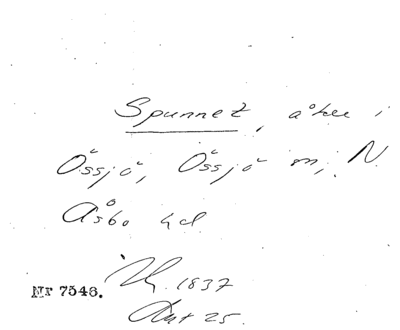 Spunnet, åker i
Össjö, Össjö sn, N.
Åsbo hd
1837
Nr 7546.
Akt 25.